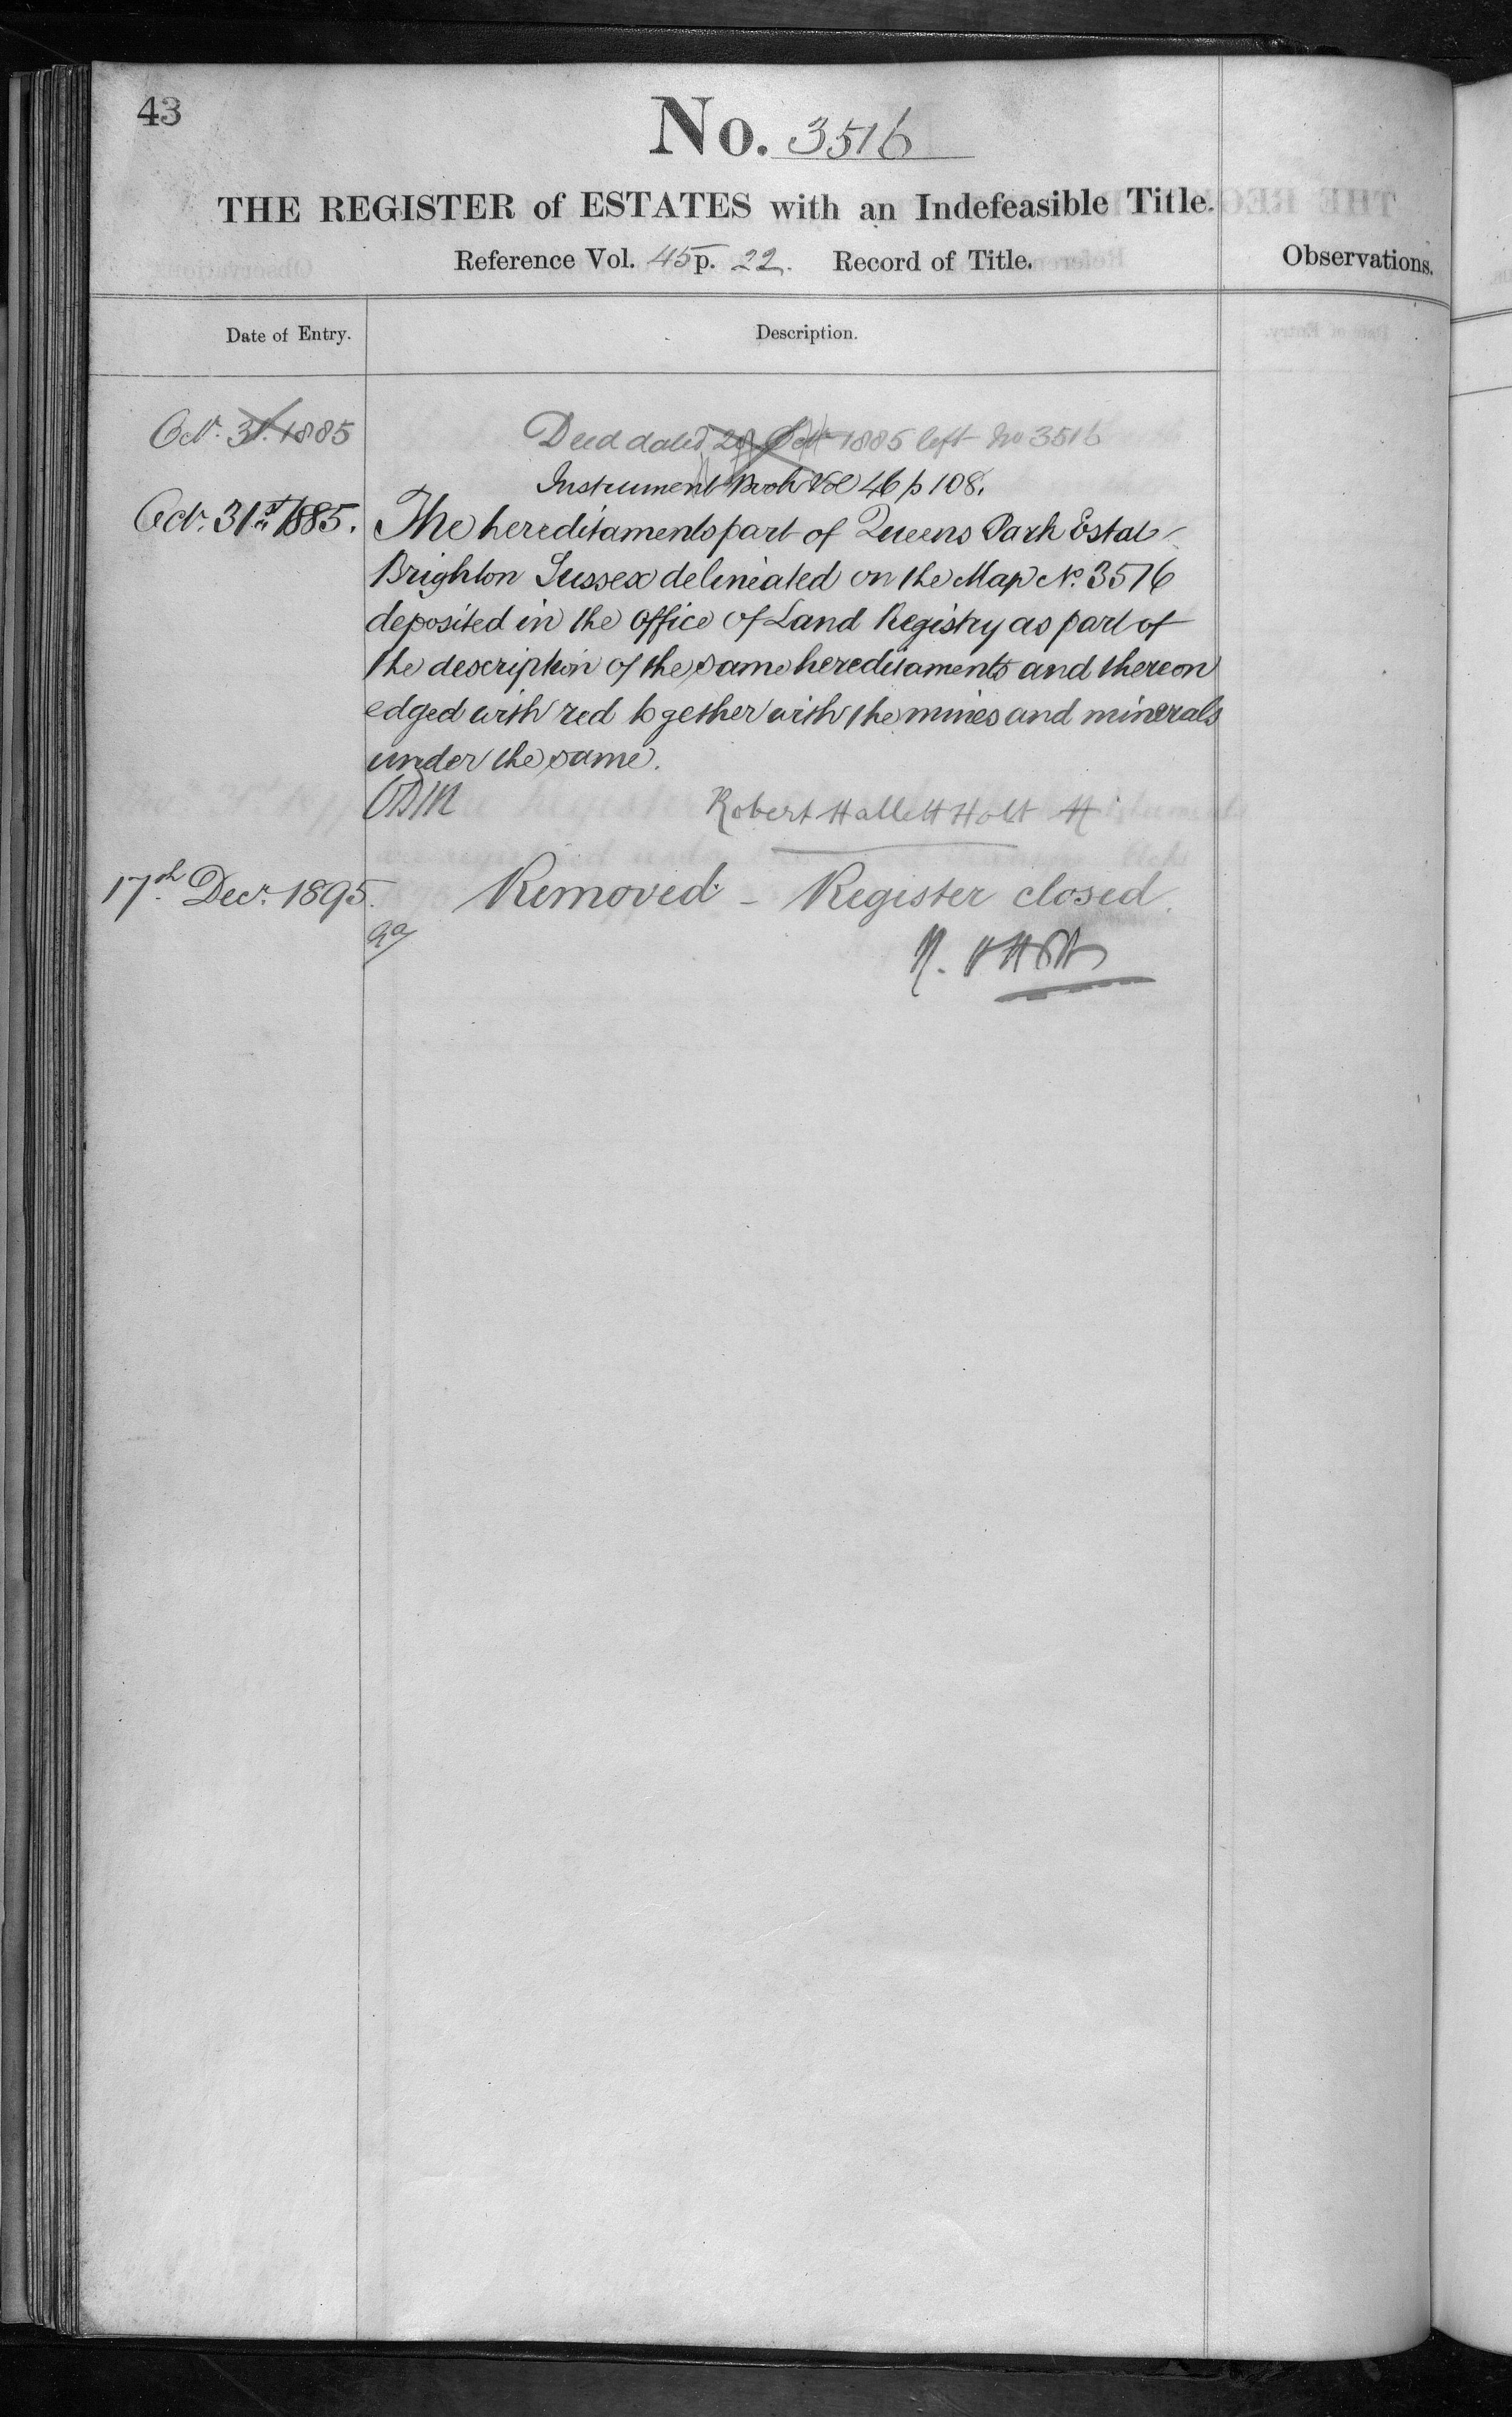 43
No. 3516
THE REGISTER of ESTATES with an Indefeasible Title.
Reference Vol. 45 p. 22. Record of Title.
Observations.
Date of Entry.
Description.
Oct. 31. 1885
Deed dated 29 Oct 1885 left No 3516
Instrument Book Vol 46 p 108.
Oct. 31st 1885.
The hereditaments part of Queens Park Estate
Brighton Sussex delineated on the Map No. 3516
deposited in the office of Land Registry as part of
the description of the same hereditaments and thereon
edged with red together with the mines and minerals
under the same.
Robert Hallett Holt
17th Decr. 1895.
Removed - Register closed.